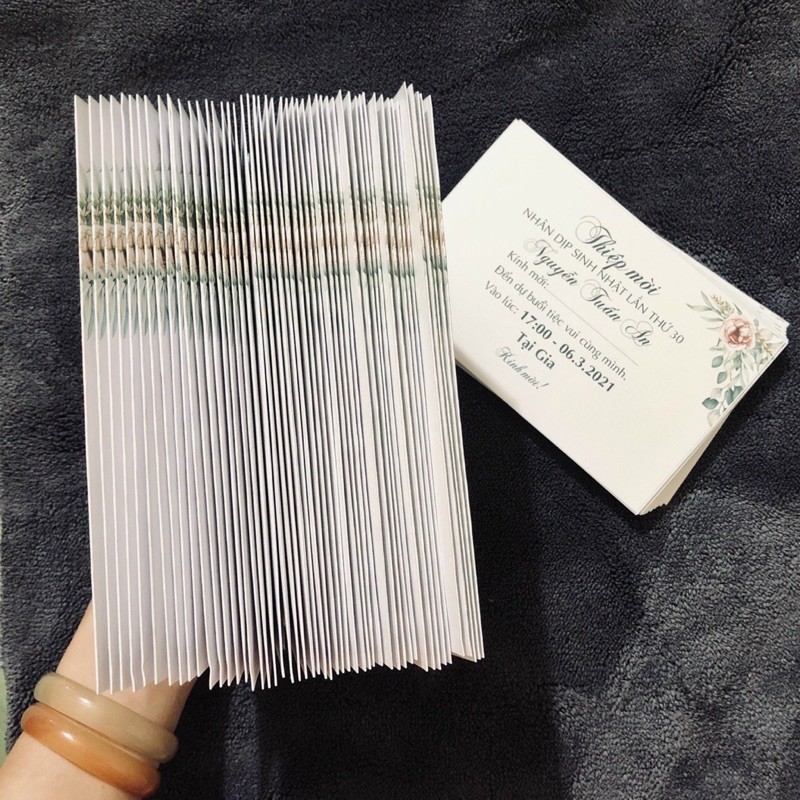 Thiếp mời
NHÂN DỊP SINH NHẬT LẦN THỨ 30
Nguyễn Tuấn An
Kính mời:
Đến dự buổi tiệc vui cùng mình.
Vào lúc: 17:00 - 06.3.2021
Tại Gia
Kính mời!